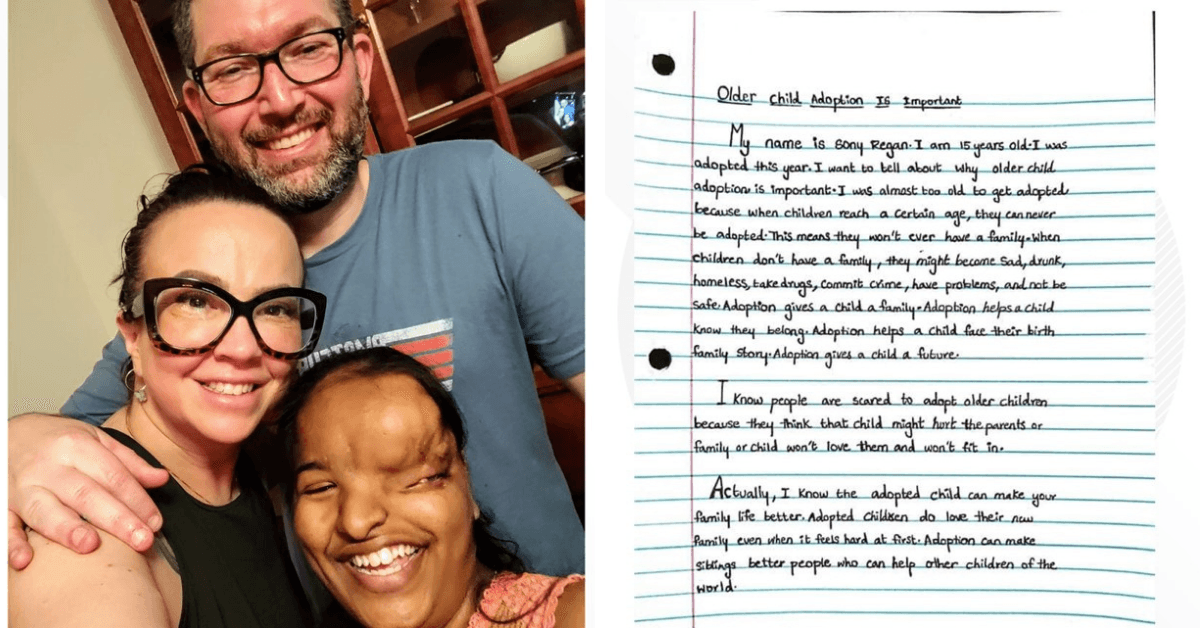 Older Child Adoption Is Important
My name is Sony Regan. I am 15 years old. I was
adopted this year. I want to tell about why older child
adoption is important. I was almost too old to get adopted
because when children reach a certain age, they can never
be adopted. This means they won't ever have a family. When
children don't have a family, they might become sad, drunk,
homeless, take drugs, commit crime, have problems, and not be
safe. Adoption gives a child a family. Adoption helps a child
know they belong. Adoption helps a child face their birth
family story. Adoption gives a child a future.
I know people are scared to adopt older children
because they think that child might hurt the parents or
family or child won't love them and won't fit in.
Actually, I know the adopted child can make your
family life better. Adopted children do love their new
family even when it feels hard at first. Adoption can make
siblings better people who can help other children of the
world.